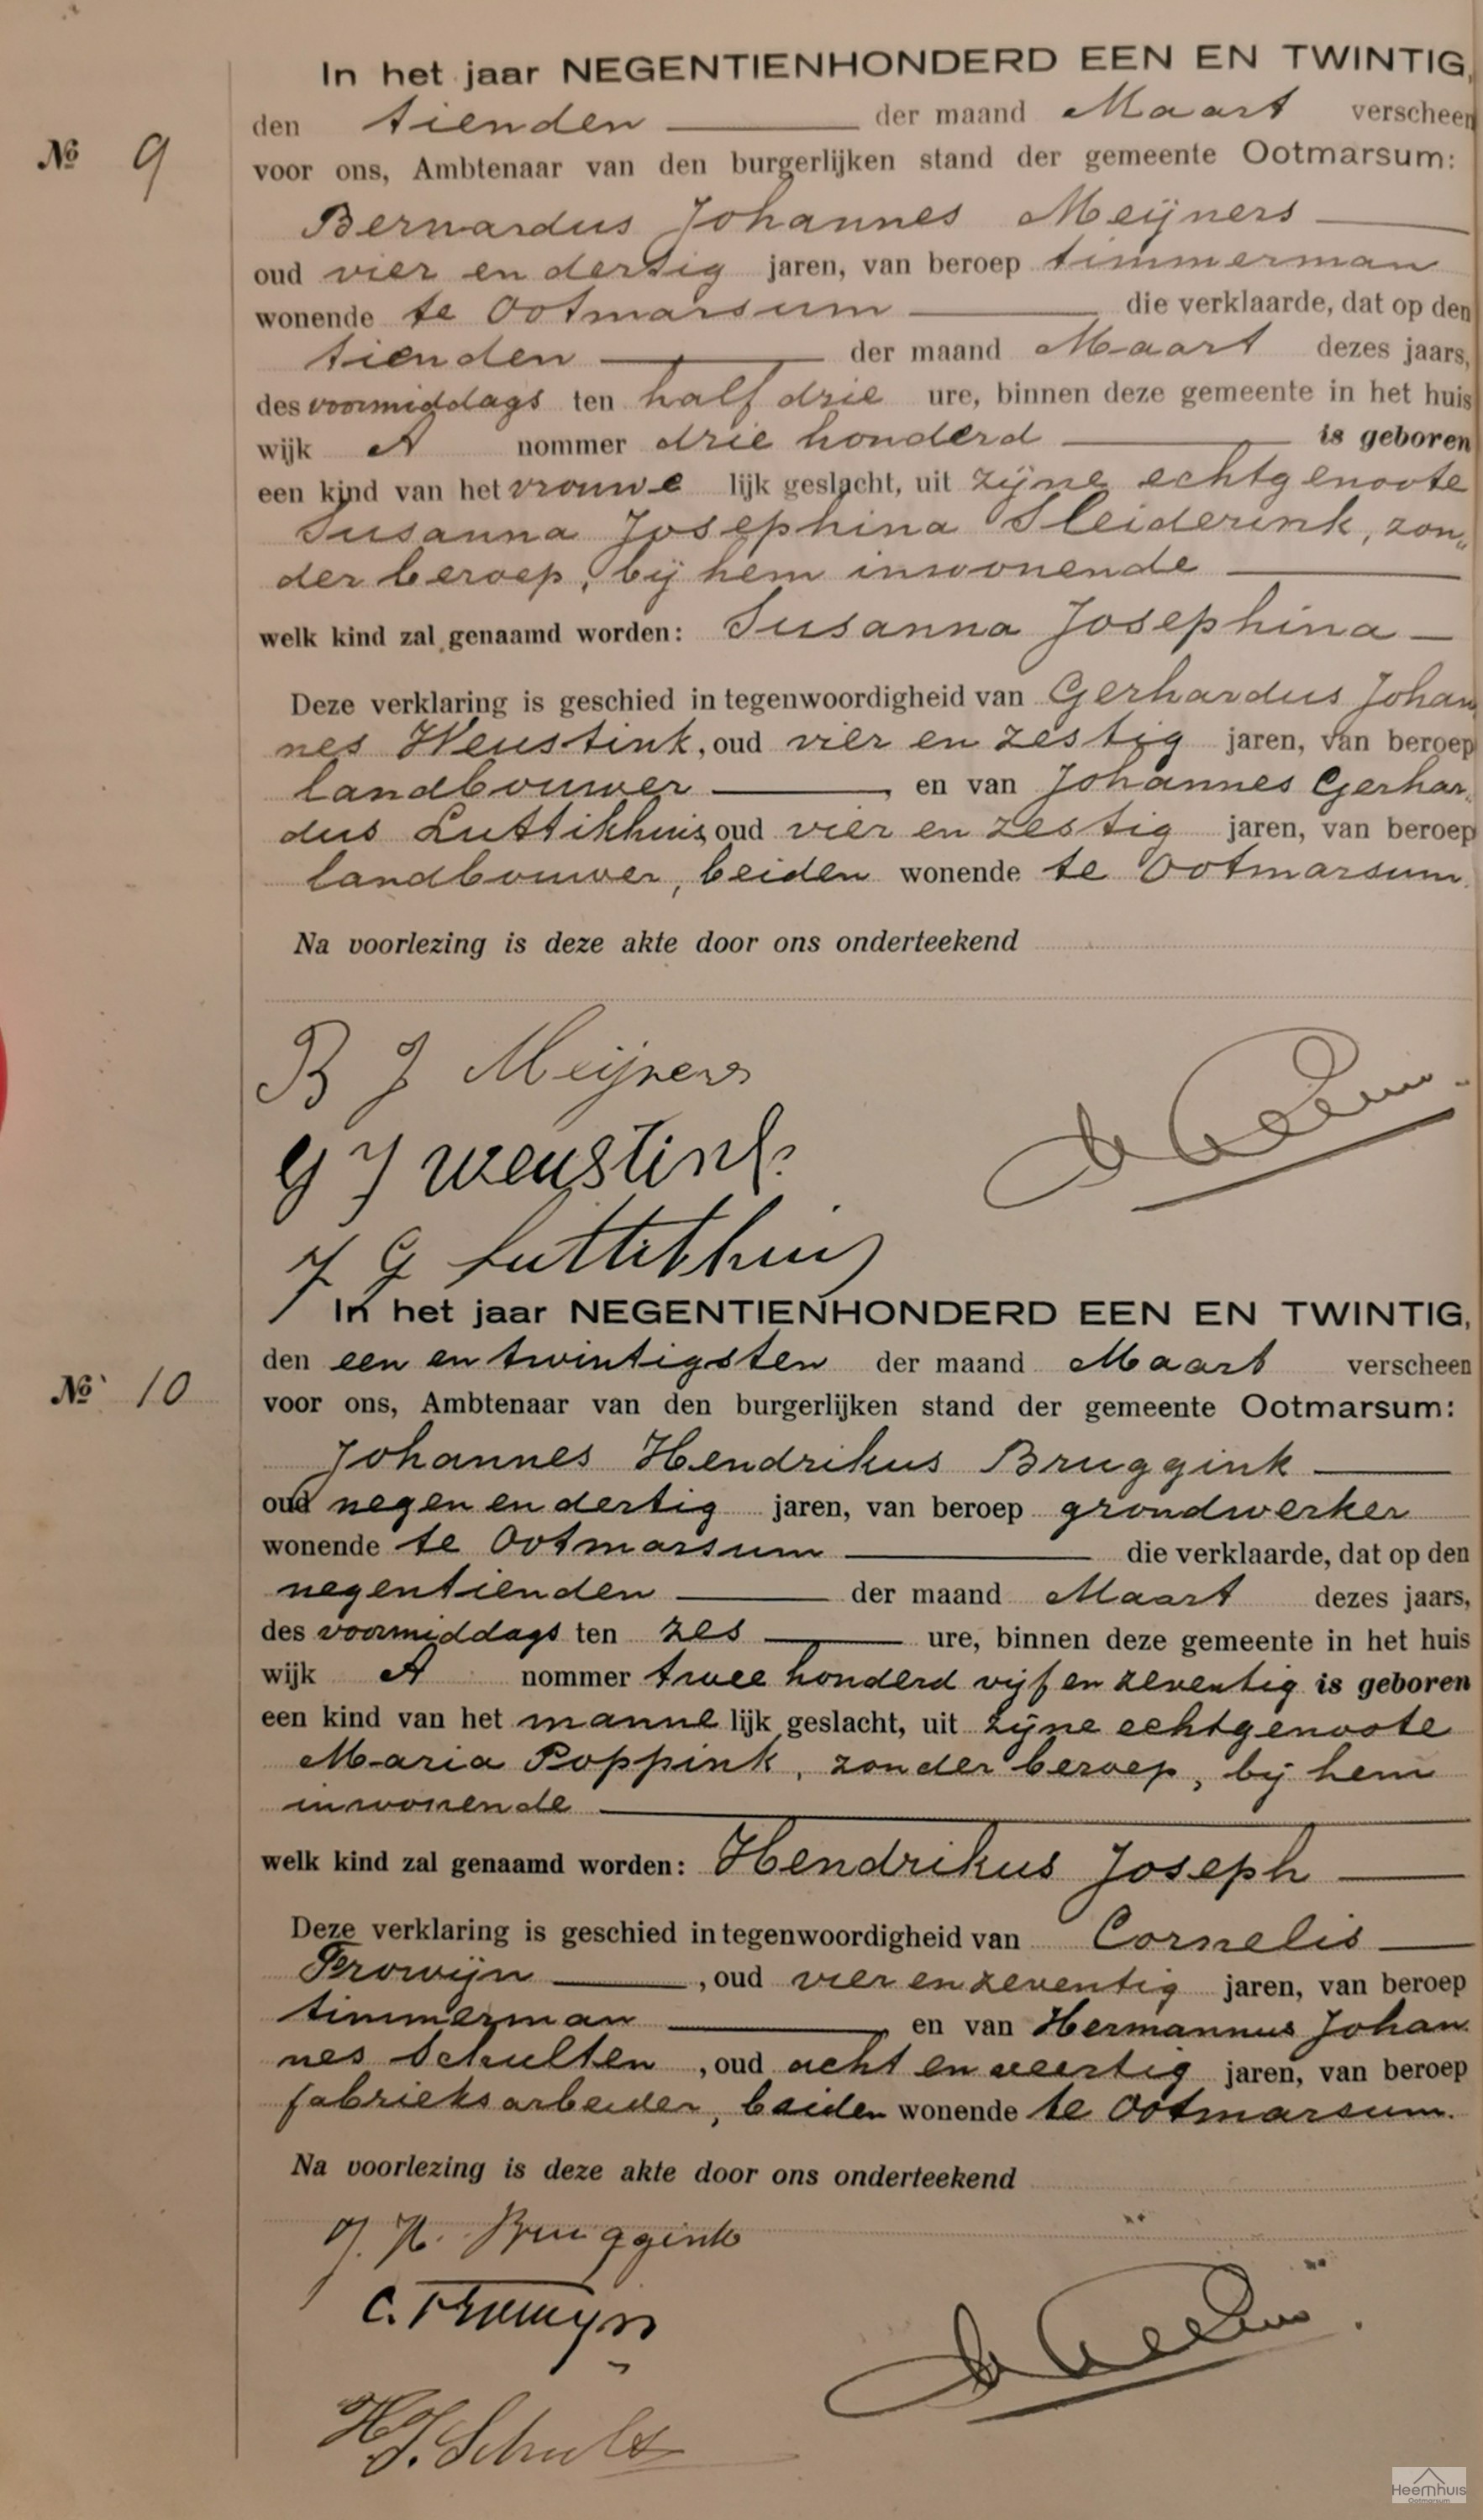 In het jaar NEGENTIENHONDERD EEN EN TWINTIG,
den tienden der maand Maart verscheen
№ 9
voor ons, Ambtenaar van den burgerlijken stand der gemeente Ootmarsum:
Bernardus Johannes Meijners
oud vier en dertig jaren, van beroep timmerman
wonende te Ootmarsum die verklaarde, dat op den
tienden der maand Maart dezes jaars,
des voormiddags ten half drie ure, binnen deze gemeente in het huis
wijk A nommer drie honderd is geboren
een kind van het vrouwe lijk geslacht, uit zijne echtgenoote
Susanna Josephina Sleiderink, zon„
der beroep, bij hem inwonende
welk kind zal genaamd worden: Susanna Josephina
Deze verklaring is geschied in tegenwoordigheid van Gerhardus Johan
nes Weustink, oud vier en zestig jaren, van beroep
landbouwer, en van Johannes Gerhar„
dus Luttikhuis, oud vier en zestig jaren, van beroep
landbouwer, beiden wonende te Ootmarsum.
Na voorlezing is deze akte door ons onderteekend
B J Meijners
G J Weustink
J G Luttikhuis
In het jaar NEGENTIENHONDERD EEN EN TWINTIG,
den een en twintigsten der maand Maart verscheen
№ 10
voor ons, Ambtenaar van den burgerlijken stand der gemeente Ootmarsum:
Johannes Hendrikus Bruggink
oud negen en dertig jaren, van beroep grondwerker
wonende te Ootmarsum die verklaarde, dat op den
negentienden der maand Maart dezes jaars,
des voormiddags ten zes ure, binnen deze gemeente in het huis
wijk A nommer twee honderd vijf en zeventig is geboren
een kind van het manne lijk geslacht, uit zijne echtgenoote
Maria Poppink, zonder beroep, bij hem
inwonende
welk kind zal genaamd worden: Hendrikus Joseph
Deze verklaring is geschied in tegenwoordigheid van Cornelis
Frowijn, oud vier en zeventig jaren, van beroep
timmerman, en van Hermannus Johan
nes Schulten, oud acht en veertig jaren, van beroep
fabrieksarbeider, beiden wonende te Ootmarsum.
Na voorlezing is deze akte door ons onderteekend
J. H. Bruggink
C. Frowijn
H J. Schulte
Heemhuis
Ootmarsum